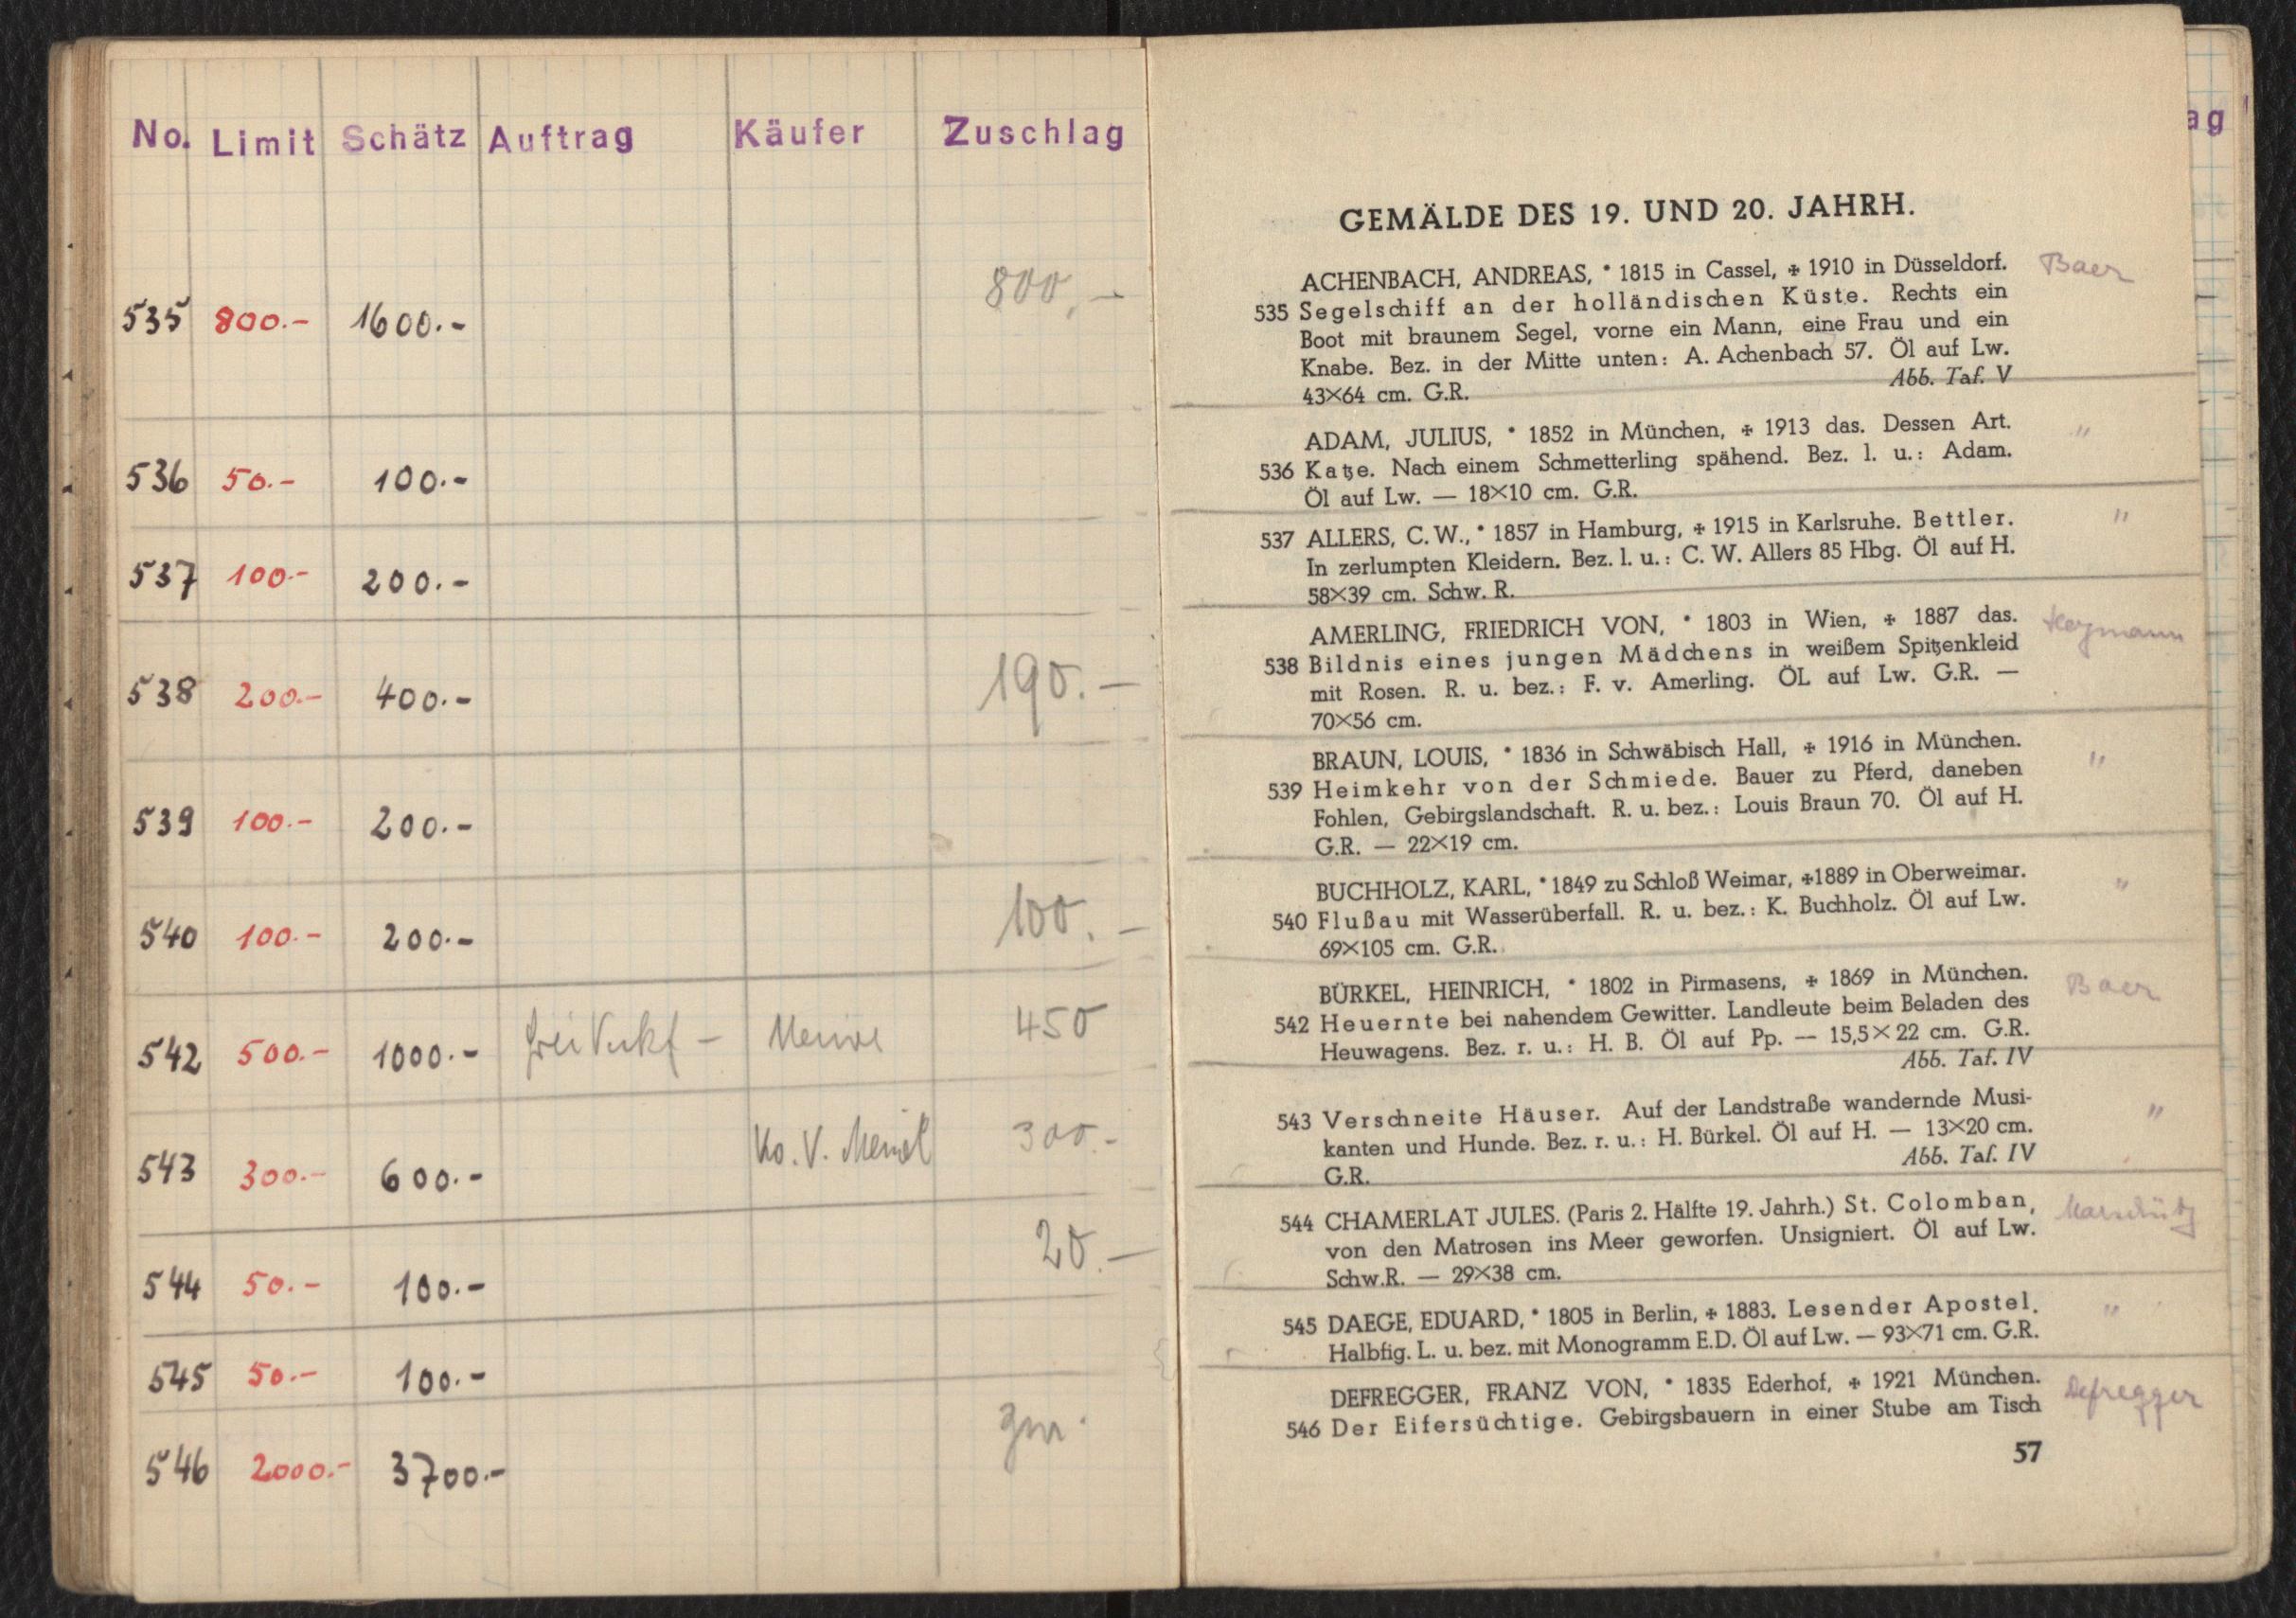 No. Limit Schätz Auftrag Käufer Zuschlag
535 800.- 1600.- 800,-
536 50.- 100.-
537 100.- 200.-
538 200.- 400.- 190.-
539 100.- 200.-
540 100.- 200.- 100.-
542 500.- 1000.- 450
543 300.- 600.- 300.-
544 50.- 100.- 20.-
545 50.- 100.-
546 2000.- 3700.-
ag
GEMÄLDE DES 19. UND 20. JAHRH.
ACHENBACH, ANDREAS, * 1815 in Cassel, ✠ 1910 in Düsseldorf. Baer
535 Segelschiff an der holländischen Küste. Rechts ein
Boot mit braunem Segel, vorne ein Mann, eine Frau und ein
Knabe. Bez. in der Mitte unten: A. Achenbach 57. Öl auf Lw.
43×64 cm. G.R. Abb. Taf. V
ADAM, JULIUS, * 1852 in München, ✠ 1913 das. Dessen Art. "
536 Katze. Nach einem Schmetterling spähend. Bez. l. u.: Adam.
Öl auf Lw. — 18×10 cm. G.R.
537 ALLERS, C. W., * 1857 in Hamburg, ✠ 1915 in Karlsruhe. Bettler. "
In zerlumpten Kleidern. Bez. l. u.: C. W. Allers 85 Hbg. Öl auf H.
58×39 cm. Schw. R.
AMERLING, FRIEDRICH VON, * 1803 in Wien, ✠ 1887 das. Heymann
538 Bildnis eines jungen Mädchens in weißem Spitzenkleid
mit Rosen. R. u. bez.: F. v. Amerling. ÖL auf Lw. G.R. —
70×56 cm.
BRAUN, LOUIS, * 1836 in Schwäbisch Hall, ✠ 1916 in München. "
539 Heimkehr von der Schmiede. Bauer zu Pferd, daneben
Fohlen, Gebirgslandschaft. R. u. bez.: Louis Braun 70. Öl auf H.
G.R. — 22×19 cm.
BUCHHOLZ, KARL, * 1849 zu Schloß Weimar, ✠1889 in Oberweimar. "
540 Flußau mit Wasserüberfall. R. u. bez.: K. Buchholz. Öl auf Lw.
69×105 cm. G.R.
BÜRKEL, HEINRICH, * 1802 in Pirmasens, ✠ 1869 in München. Baer
542 Heuernte bei nahendem Gewitter. Landleute beim Beladen des
Heuwagens. Bez. r. u.: H. B. Öl auf Pp. — 15,5×22 cm. G.R.
Abb. Taf. IV
543 Verschneite Häuser. Auf der Landstraße wandernde Musi- "
kanten und Hunde. Bez. r. u.: H. Bürkel. Öl auf H. — 13×20 cm.
G.R. Abb. Taf. IV
544 CHAMERLAT JULES. (Paris 2. Hälfte 19. Jahrh.) St. Colomban, Marschütz
von den Matrosen ins Meer geworfen. Unsigniert. Öl auf Lw.
Schw.R. — 29×38 cm.
545 DAEGE, EDUARD, * 1805 in Berlin, ✠ 1883. Lesender Apostel. "
Halbfig. L. u. bez. mit Monogramm E.D. Öl auf Lw. — 93×71 cm. G.R.
DEFREGGER, FRANZ VON, * 1835 Ederhof, ✠ 1921 München. Defregger
546 Der Eifersüchtige. Gebirgsbauern in einer Stube am Tisch
57